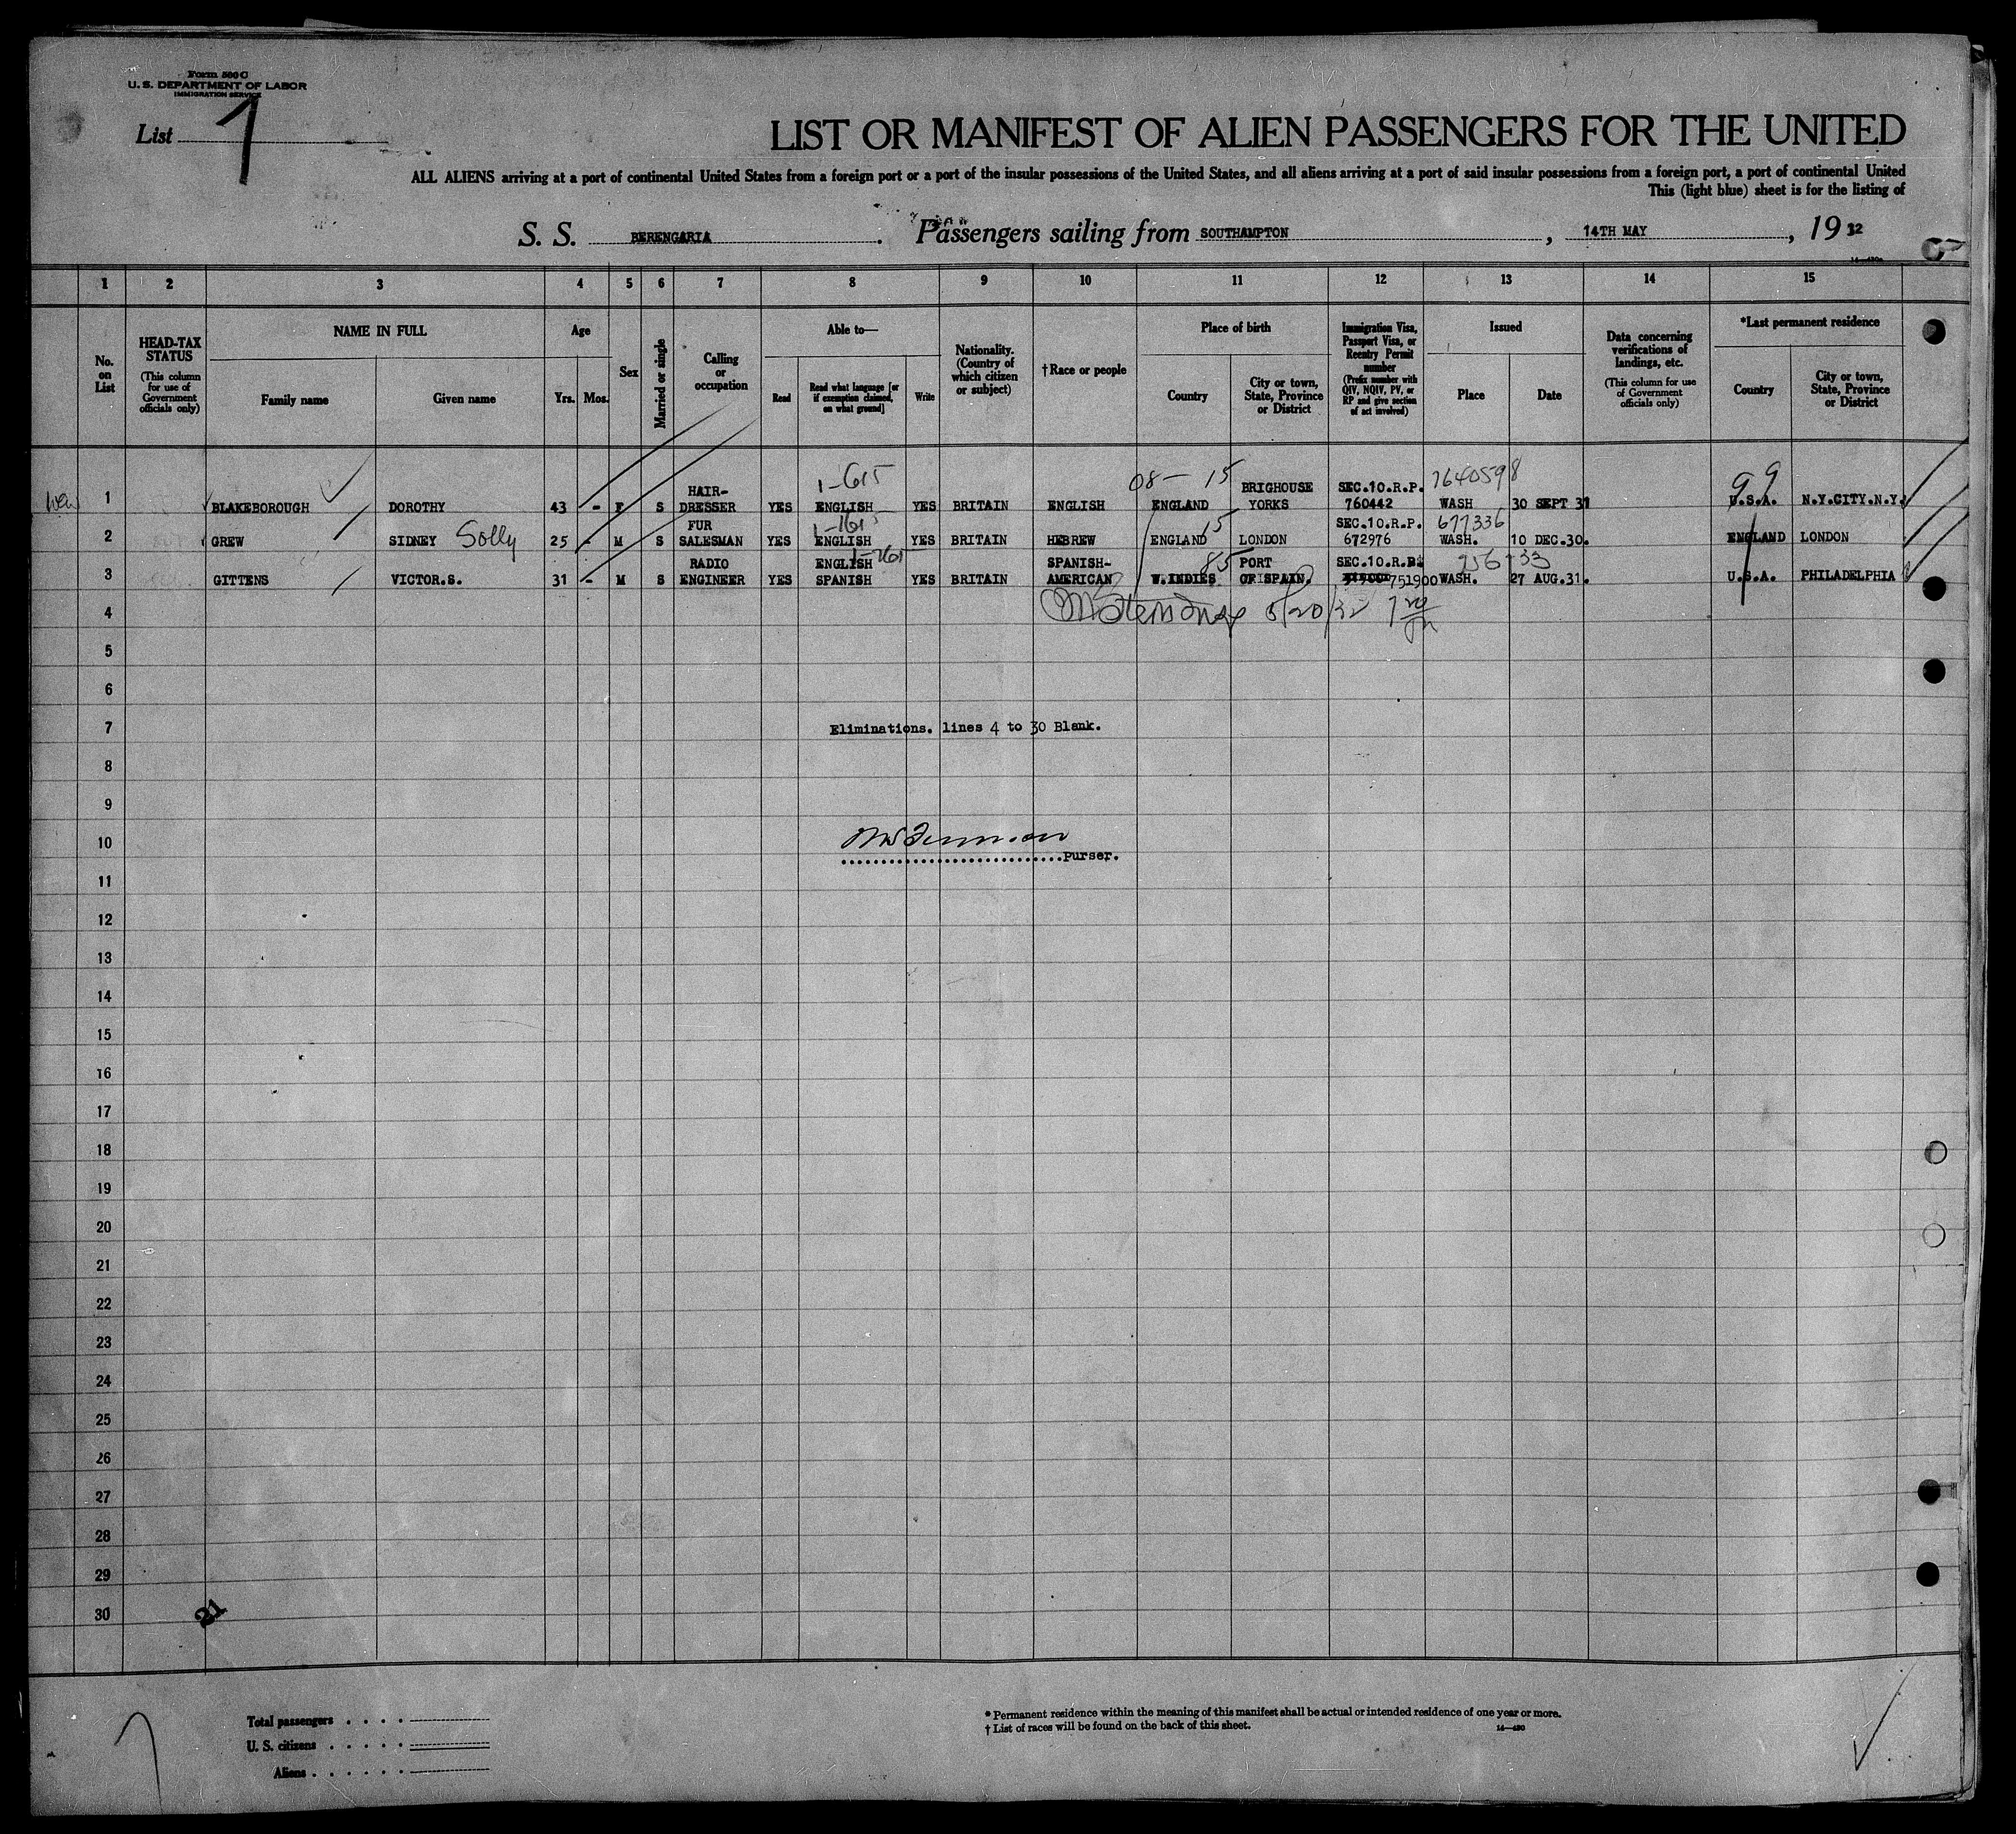 Form 500 C
U. S. DEPARTMENT OF LABOR
IMMIGRATION SERVICE
List 7
LIST OR MANIFEST OF ALIEN PASSENGERS FOR THE UNITED
ALL ALIENS arriving at a port of continental United States from a foreign port or a port of the insular possessions of the United States, and all aliens arriving at a port of said insular possessions from a foreign port, a port of continental United
This (light blue) sheet is for the listing of
S. S. BERENGARIA. Passengers sailing from SOUTHAMPTON, 14TH MAY, 19 32
1 2 3 4 5 6 7 8 9 10 11 12 13 14 15
No. on List
HEAD-TAX STATUS
(This column for use of Government officials only)
NAME IN FULL
Family name
Given name
Age
Yrs. Mos.
Sex
Married or single
Calling or occupation
Able to—
Read
Read what language [or if exemption claimed, on what ground]
Write
Nationality. (Country of which citizen or subject)
†Race or people
Place of birth
Country
City or town, State, Province or District
Immigration Visa, Passport Visa, or Reentry Permit number
(Prefix number with QIV, NQIV, PV, or RP and give section of act involved)
Issued
Place
Date
Data concerning verifications of landings, etc.
(This column for use of Government officials only)
*Last permanent residence
Country
City or town, State, Province or District
1-615 08- 15 7640598 99
1 BLAKEBOROUGH DOROTHY 43 - F S HAIR-DRESSER YES ENGLISH YES BRITAIN ENGLISH ENGLAND BRIGHOUSE YORKS SEC.10.R.P. 760442 WASH 30 SEPT 31 U.S.A. N.Y.CITY.N.Y.
15 677336
2 GREW SIDNEY Solly 25 - M S FUR SALESMAN YES ENGLISH YES BRITAIN HEBREW ENGLAND LONDON SEC.10.R.P. 672976 WASH. 10 DEC.30. ENGLAND LONDON
85
3 GITTENS VICTOR.S. 31 - M S RADIO ENGINEER YES ENGLISH SPANISH YES BRITAIN SPANISH-AMERICAN W.INDIES PORT OF SPAIN. SEC.10.R.P. 751900 WASH. 27 AUG.31. U.S.A. PHILADELPHIA
4
5/20/32
5
6
7 Eliminations. lines 4 to 30 Blank.
8
9
10
Purser.
11
12
13
14
15
16
17
18
19
20
21
22
23
24
25
26
27
28
29
30
21
Total passengers
U. S. citizens
Aliens
* Permanent residence within the meaning of this manifest shall be actual or intended residence of one year or more.
† List of races will be found on the back of this sheet.
14—430